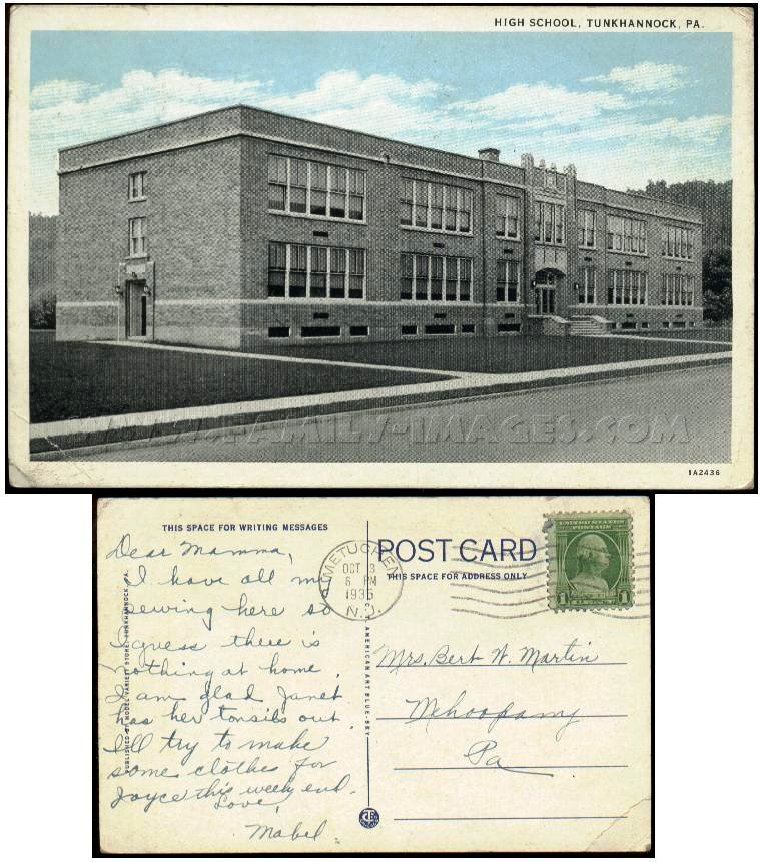 HIGH SCHOOL, TUNKHANNOCK, PA.
WWW.FAMILY-IMAGES.COM
1A2436
THIS SPACE FOR WRITING MESSAGES
Dear Mamma,
I have all my
sewing here so
I guess there is
nothing at home.
I am glad Janet
has her tonsils out.
I'll try to make
some clothes for
Joyce this week end.
Love,
Mabel.
PUBLISHED BY MODEL VARIETY STORE, TUNKHANNOCK, PA.
C.T. AMERICAN ART BLUE-SKY
METUCHEN
OCT 3
6 PM
1935
N.J.
POST CARD
THIS SPACE FOR ADDRESS ONLY
UNITED STATES
POSTAGE
1 1
Mrs. Bert W. Martin
Mehoopany
Pa